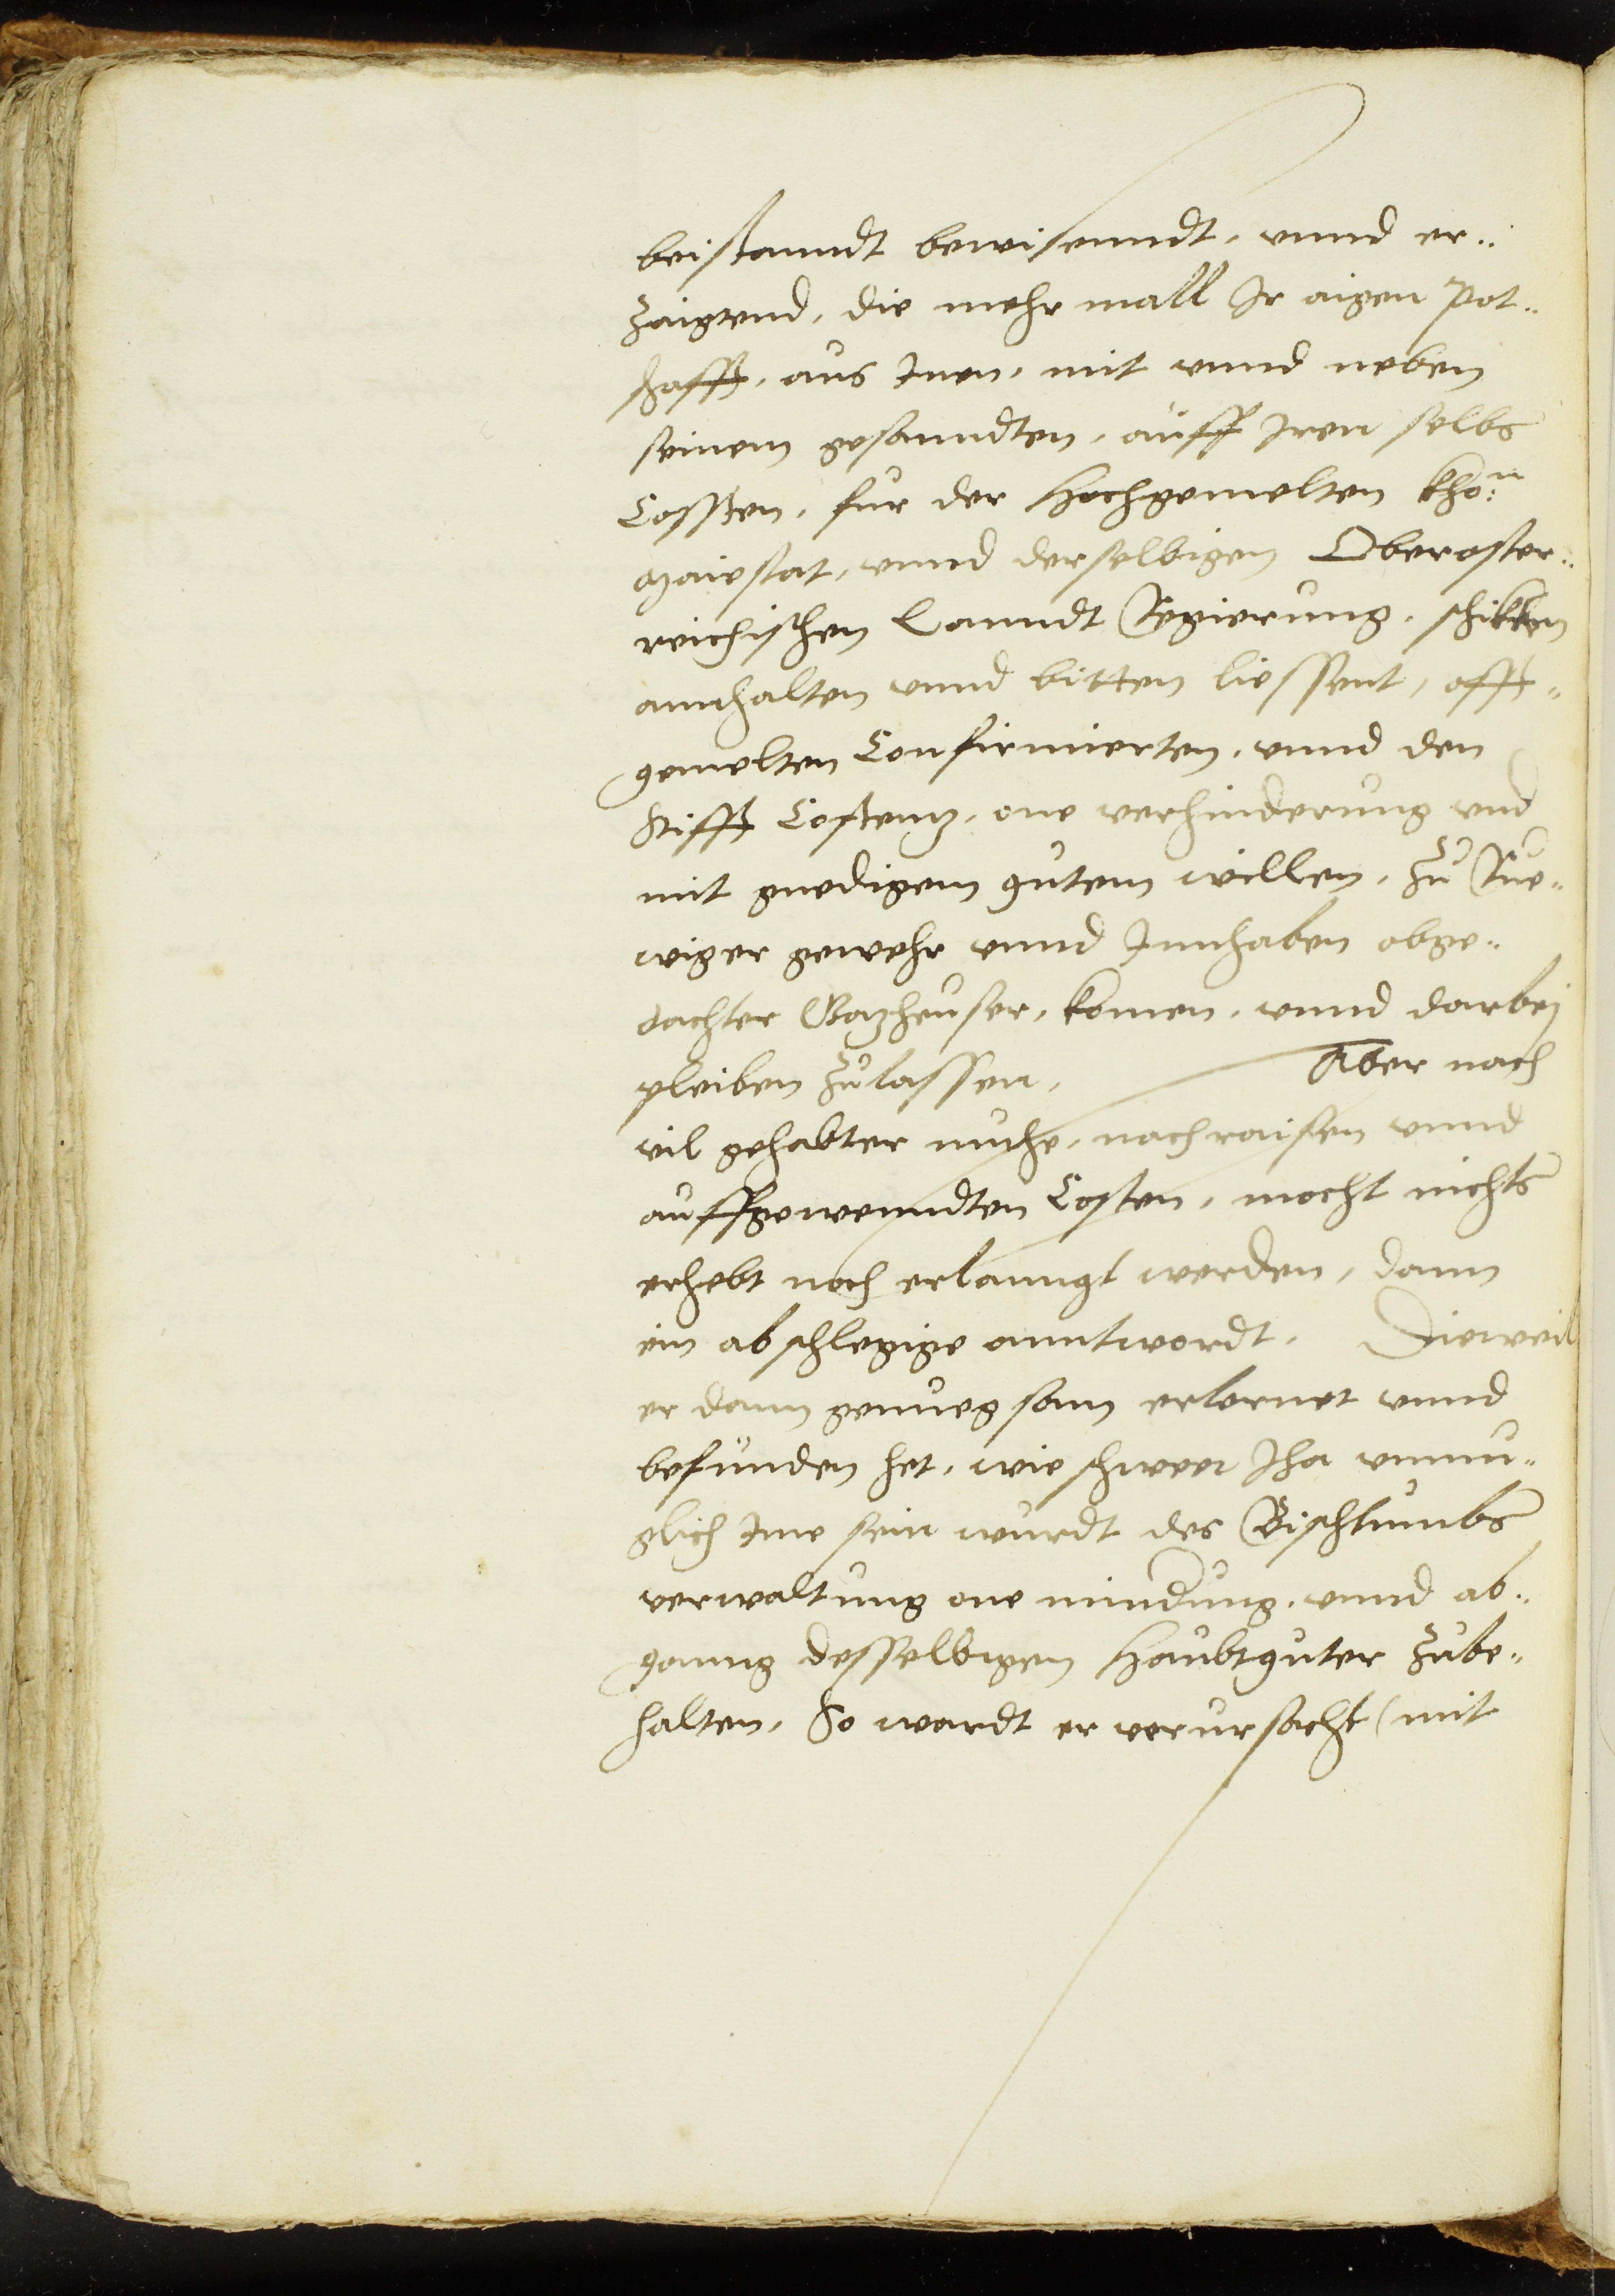 beistanndt bewisenndt, vnnd er¨
zaigtend, die mehr mall Ir aigen Pot¨
schafft, aus Inen, mit vnnd neben
seinem gesanndten, auff Iren selbs
Cossten, fur der Hochgemelten kho:n
Maiestat, vnnd derselbigen Oberoster¨
reichischen Lanndt Regierung, schikken
annhalten vnnd bitten liessent, offt¨
gemelten Confirmierten, vnnd den
Stifft Costentz, one verhinderung vnd
mit gnedigem gutem willen, zu Rue¨
wiger gewehr vnnd Innhaben obge¨
dachter Gotzheuser, komen, vnnd darbej
pleiben zulassen, Aber nach
vil gehabter muhe, nachraisen vnnd
auffgewenndten Costen, mocht nichts
erhebt noch erlanngt werden, dann
ein abschlegige anntwordt, Dieweil
er dann genuegsam erlernet vnnd
befunden het, wie schwer Iha vnmu¨
glich Ime sein wurdt des Bischtumbs
verwaltung one mindung, vnnd ab¨
ganng desselbigen Haubtguter zube¨
halten, So wardt er verursacht (mit